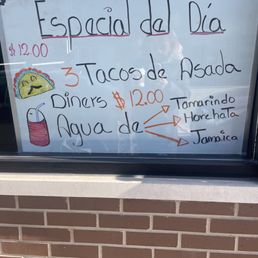 Espacial del Día
$12.00
3 Tacos de Asada
Diners $12.00
Agua de
Tamarindo
Horchata
Jamaica